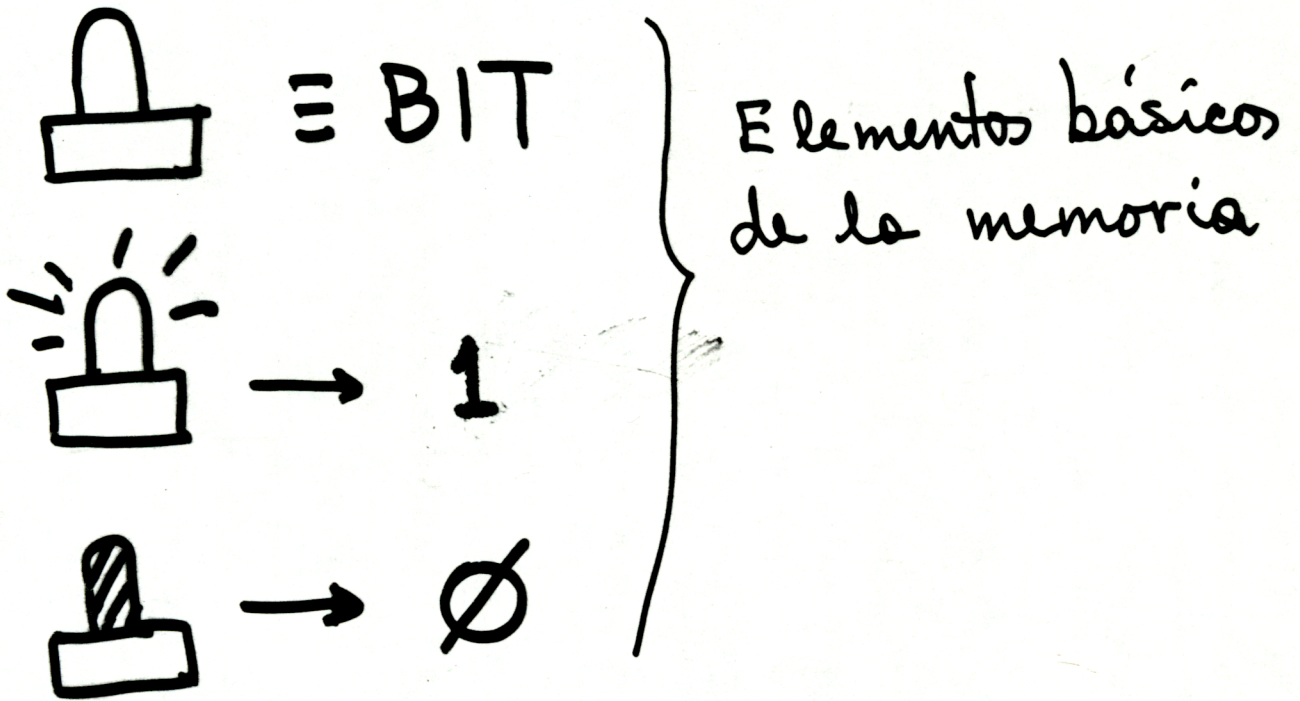 ≡ BIT
Elementos básicos
de la memoria
→ 1
→ Ø